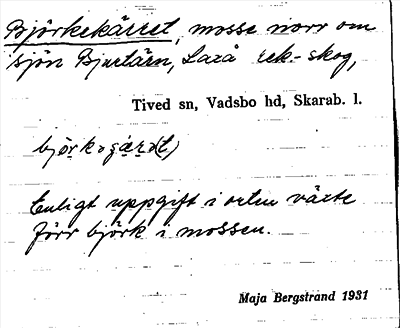 Björkekärret, mosse norr om
sjön Bjurtärn, Laxå rek-skog,
Tived sn, Vadsbo hd, Skarab. l.
Enligt uppgift i orten växte
förr björk i mossen.
Maja Bergstrand 1931